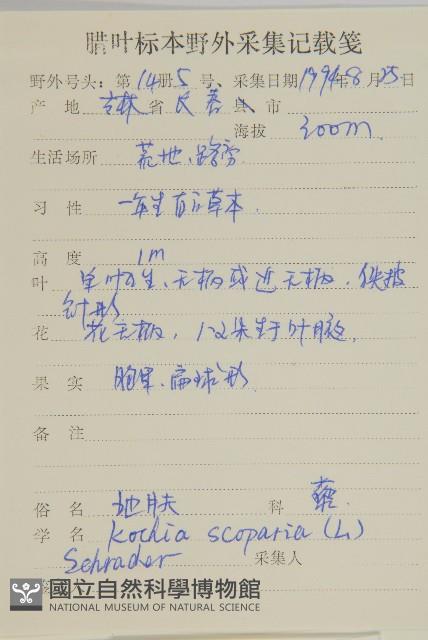 腊叶标本野外采集记载笺
野外号头：第14册5号、采集日期1994年8月25日
产地 吉林省长春县市
海拔 300m
生活场所 荒地、路旁
习性 一年生直立草本.
高度 1m
叶 单叶互生、无柄或近无柄.线披
针形
花 花无柄，1-2朵生于叶腋.
果实 胞果.扁球形
备注
俗名 地肤 科 藜.
学名 Kochia scoparia (L.)
Schrader 采集人
國立自然科學博物館
NATIONAL MUSEUM OF NATURAL SCIENCE